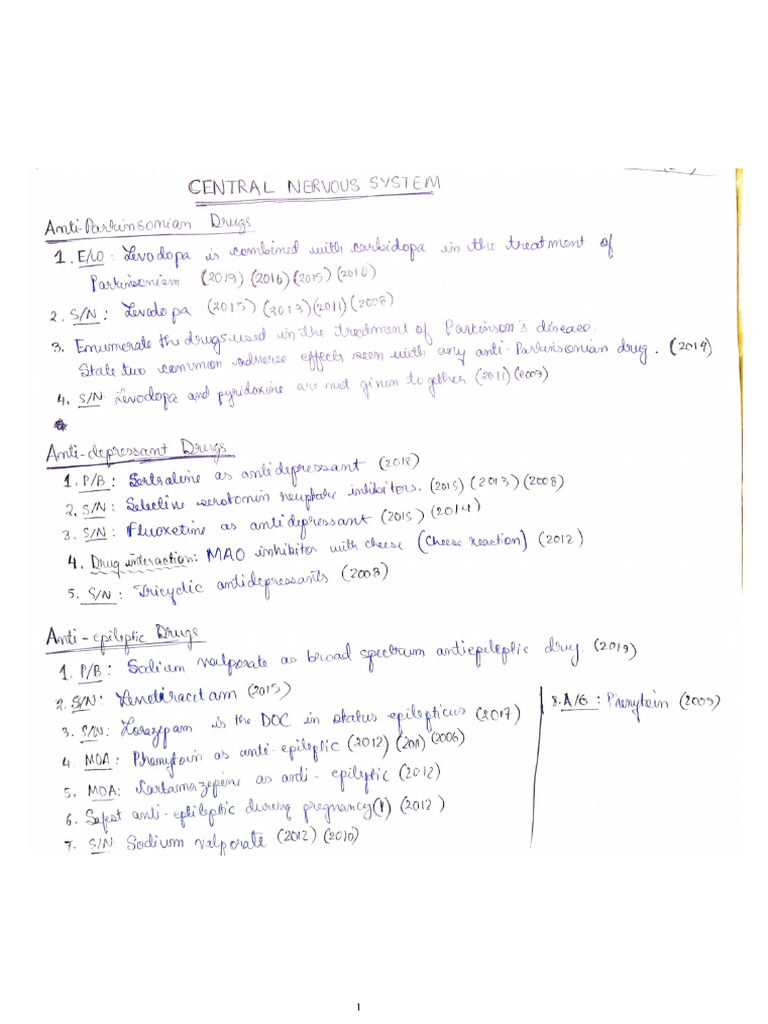 CENTRAL NERVOUS SYSTEM
Anti-Parkinsonian Drugs
1. E/LO : Levodopa is combined with carbidopa in the treatment of
Parkinsonism (2019) (2016) (2015) (2010)
2. S/N : Levodopa (2015) (2013) (2011) (2008)
3. Enumerate the drugs used in the treatment of Parkinson's disease.
State two common adverse effects seen with any anti-Parkinsonian drug. (2014)
4. S/N Levodopa and pyridoxine are not given together (2011) (2009)
Anti-depressant Drugs
1. P/B : Sertraline as antidepressant (2018)
2. S/N : Selective serotonin reuptake inhibitors. (2015) (2013) (2008)
3. S/N : Fluoxetine as antidepressant (2015) (2014)
4. Drug interaction: MAO inhibitor with cheese (Cheese reaction) (2012)
5. S/N : Tricyclic antidepressants (2008)
Anti-epileptic Drugs
1. P/B : Sodium valporate as broad spectrum antiepileptic drug. (2019)
2. S/N : Levetiracetam (2015)
3. S/N : Lorazepam is the DOC in status epilepticus (2017)
4. MOA : Phenytoin as anti-epileptic (2012) (2011) (2006)
5. MOA: Carbamazepine as anti-epileptic (2012)
6. Safest anti-epileptic during pregnancy (1) (2012)
7. S/N Sodium valporate (2012) (2010)
8. A/G : Phenytoin (2009)
1